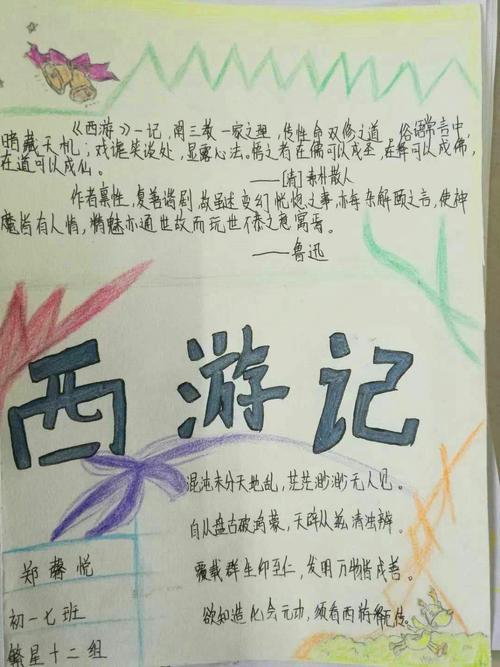 《西游》一记，阐三教一家之理，传性命双修之道。俗语常言中，
暗藏天机；戏谑笑谈处，显露心法。悟之者在儒可以成圣，在释可以成佛，
在道可以成仙。
——[清]素朴散人
作者禀性，复善谐剧，故虽述变幻恍惚之事，亦每杂解颐之言，使神
魔皆有人情，精魅亦通世故而玩世不恭之意寓焉。
——鲁迅
西游记
混沌未分天地乱，茫茫渺渺无人见。
自从盘古破鸿蒙，天辟从兹清浊辨。
覆载群生仰至仁，发明万物皆成善。
欲知造化会元功，须看西游释厄传。
郑馨悦
初一七班
繁星十二组